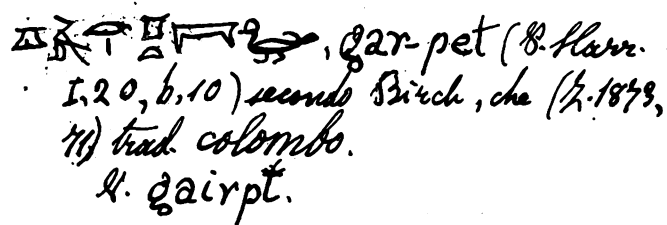 , gar-pet (P. Harr.
I, 20, b, 10) secondo Birch, che (Z. 1873,
71) trad. colombo.
V. gairpt.